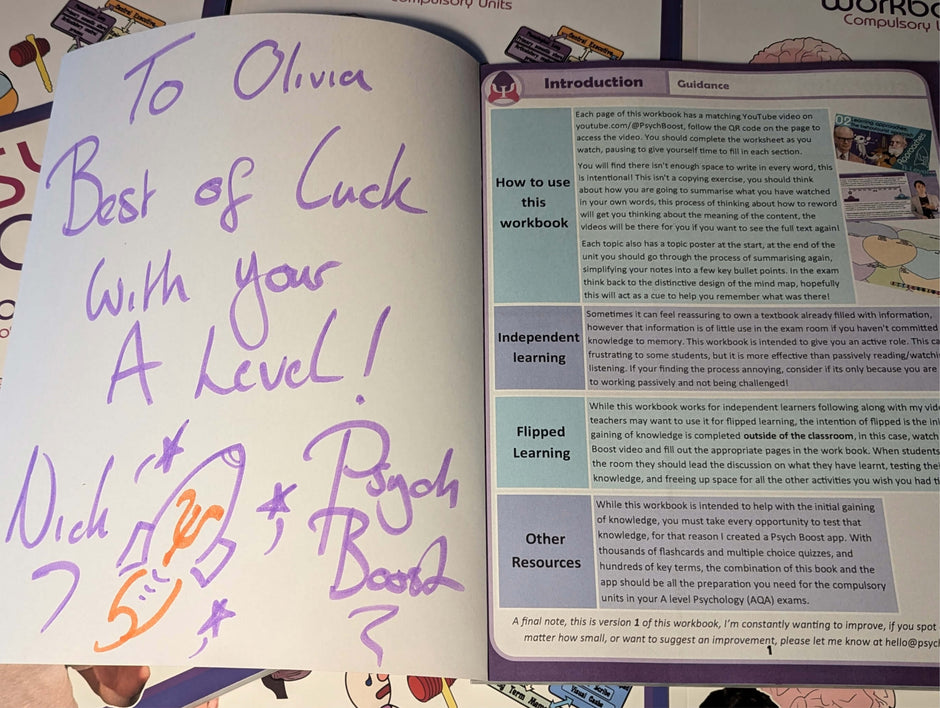 To Olivia
Best of Luck
with your
A Level!
Nick
Psych
Boost
Introduction
Guidance
How to use
this
workbook
Each page of this workbook has a matching YouTube video on
youtube.com/@PsychBoost, follow the QR code on the page to
access the video. You should complete the worksheet as you
watch, pausing to give yourself time to fill in each section.
You will find there isn't enough space to write in every word, this
is intentional! This isn't a copying exercise, you should think
about how you are going to summarise what you have watched
in your own words, this process of thinking about how to reword
will get you thinking about the meaning of the content, the
videos will be there for you if you want to see the full text again!
Each topic also has a topic poster at the start, at the end of the
unit you should go through the process of summarising again,
simplifying your notes into a few key bullet points. In the exam
think back to the distinctive design of the mind map, hopefully
this will act as a cue to help you remember what was there!
Independent
learning
Sometimes it can feel reassuring to own a textbook already filled with information,
however that information is of little use in the exam room if you haven't committed
knowledge to memory. This workbook is intended to give you an active role. This ca
frustrating to some students, but it is more effective than passively reading/watchi
listening. If your finding the process annoying, consider if its only because you are
to working passively and not being challenged!
Flipped
Learning
While this workbook works for independent learners following along with my vid
teachers may want to use it for flipped learning, the intention of flipped is the ini
gaining of knowledge is completed outside of the classroom, in this case, watch
Boost video and fill out the appropriate pages in the work book. When students
the room they should lead the discussion on what they have learnt, testing the
knowledge, and freeing up space for all the other activities you wish you had t
Other
Resources
While this workbook is intended to help with the initial gaining
of knowledge, you must take every opportunity to test that
knowledge, for that reason I created a Psych Boost app. With
thousands of flashcards and multiple choice quizzes, and
hundreds of key terms, the combination of this book and the
app should be all the preparation you need for the compulsory
units in your A level Psychology (AQA) exams.
A final note, this is version 1 of this workbook, I'm constantly wanting to improve, if you spot
matter how small, or want to suggest an improvement, please let me know at hello@psyc
1
Compulsory Units
Central Executive
Workbo
Compulsory U
Central Executive
Visual Cache